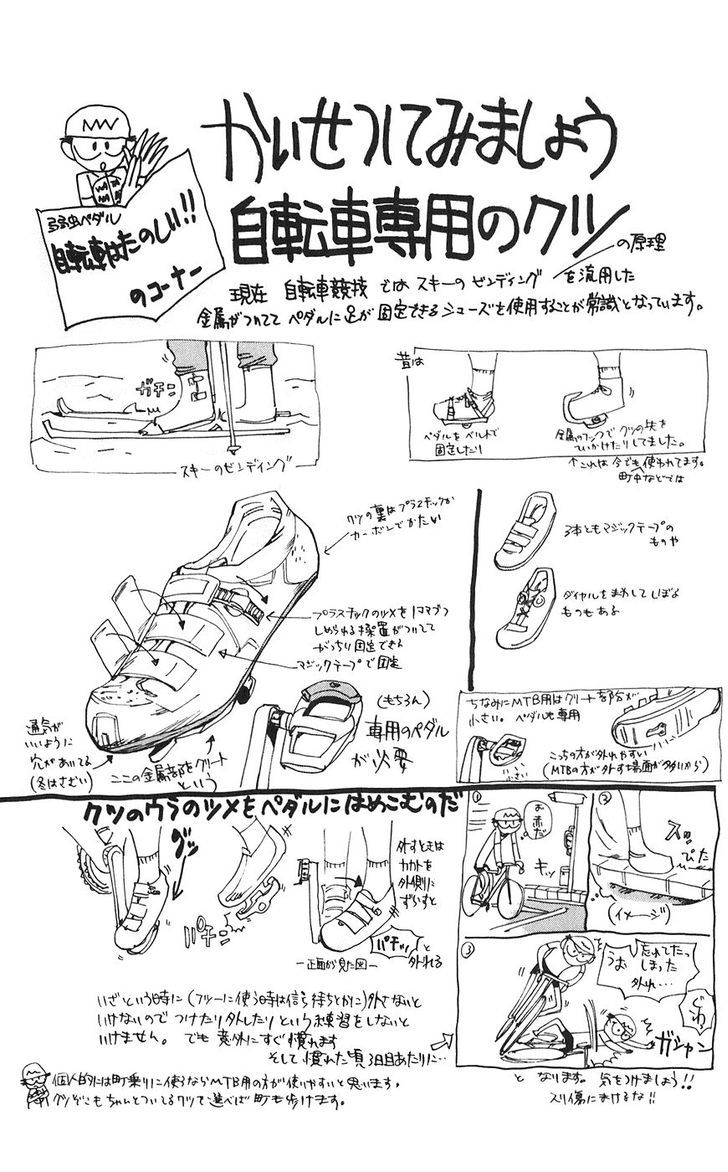 かいせつしてみましょう
弱虫ペダル
自転車はたのしい!!
のコーナー
自転車専用のクツ
の原理
現在 自転車競技 では スキーの ビンディング を流用した
金属がついてて ペダルに足が固定できるシューズを使用することが常識となっています。
ガチン
スキーのビンディング
昔は
ペダルをベルトで
固定したり
金属のフックでクツの先を
ひっかけたりしてました。
↑これは今でも使われてます。
町中などでは
クツの裏はプラスチックか
カーボンでかたい
プラスチックのツメを1コマづつ
しめられる装置がついてて
がっちり固定できる
マジックテープで固定
3本ともマジックテープの
ものや
ダイヤルをまわしてしぼる
ものもある
通気が
いいように
穴があいてる
(冬はさむい)
ここの金属部をクリート
という
(もちろん)
専用のペダル
が必要
ちなみにMTB用はクリート部分が
小さい。ペダルも専用
小さい
こっちの方が外れやすい
(MTBの方が外す場面が多いから)
クツのウラのツメをペダルにはめこむのだ
グッ
パチン
外すときは
カカトを
外側に
ずらすと
パチッ と
外れる
ー正面から見た図ー
いざという時に(フツーに使う時は信号待ちとかに)外さないと
いけないので つけたり外したり という練習をしないと
いけません。でも 意外にすぐ慣れます
そして慣れた頃 3日目あたりに…
①
お
赤だ
キッ
②
スッ
ぴた
(イメージ)
③
うお
忘れてたっ
しまった
外れ…
ぐわ
ガシャン
と なります。気をつけましょう!!
スリ傷にまけるな!!
個人的には町乗りに使うならMTB用の方が使いやすいと思います。
クツぞこもちゃんとついてるクツで選べば町も歩けます。